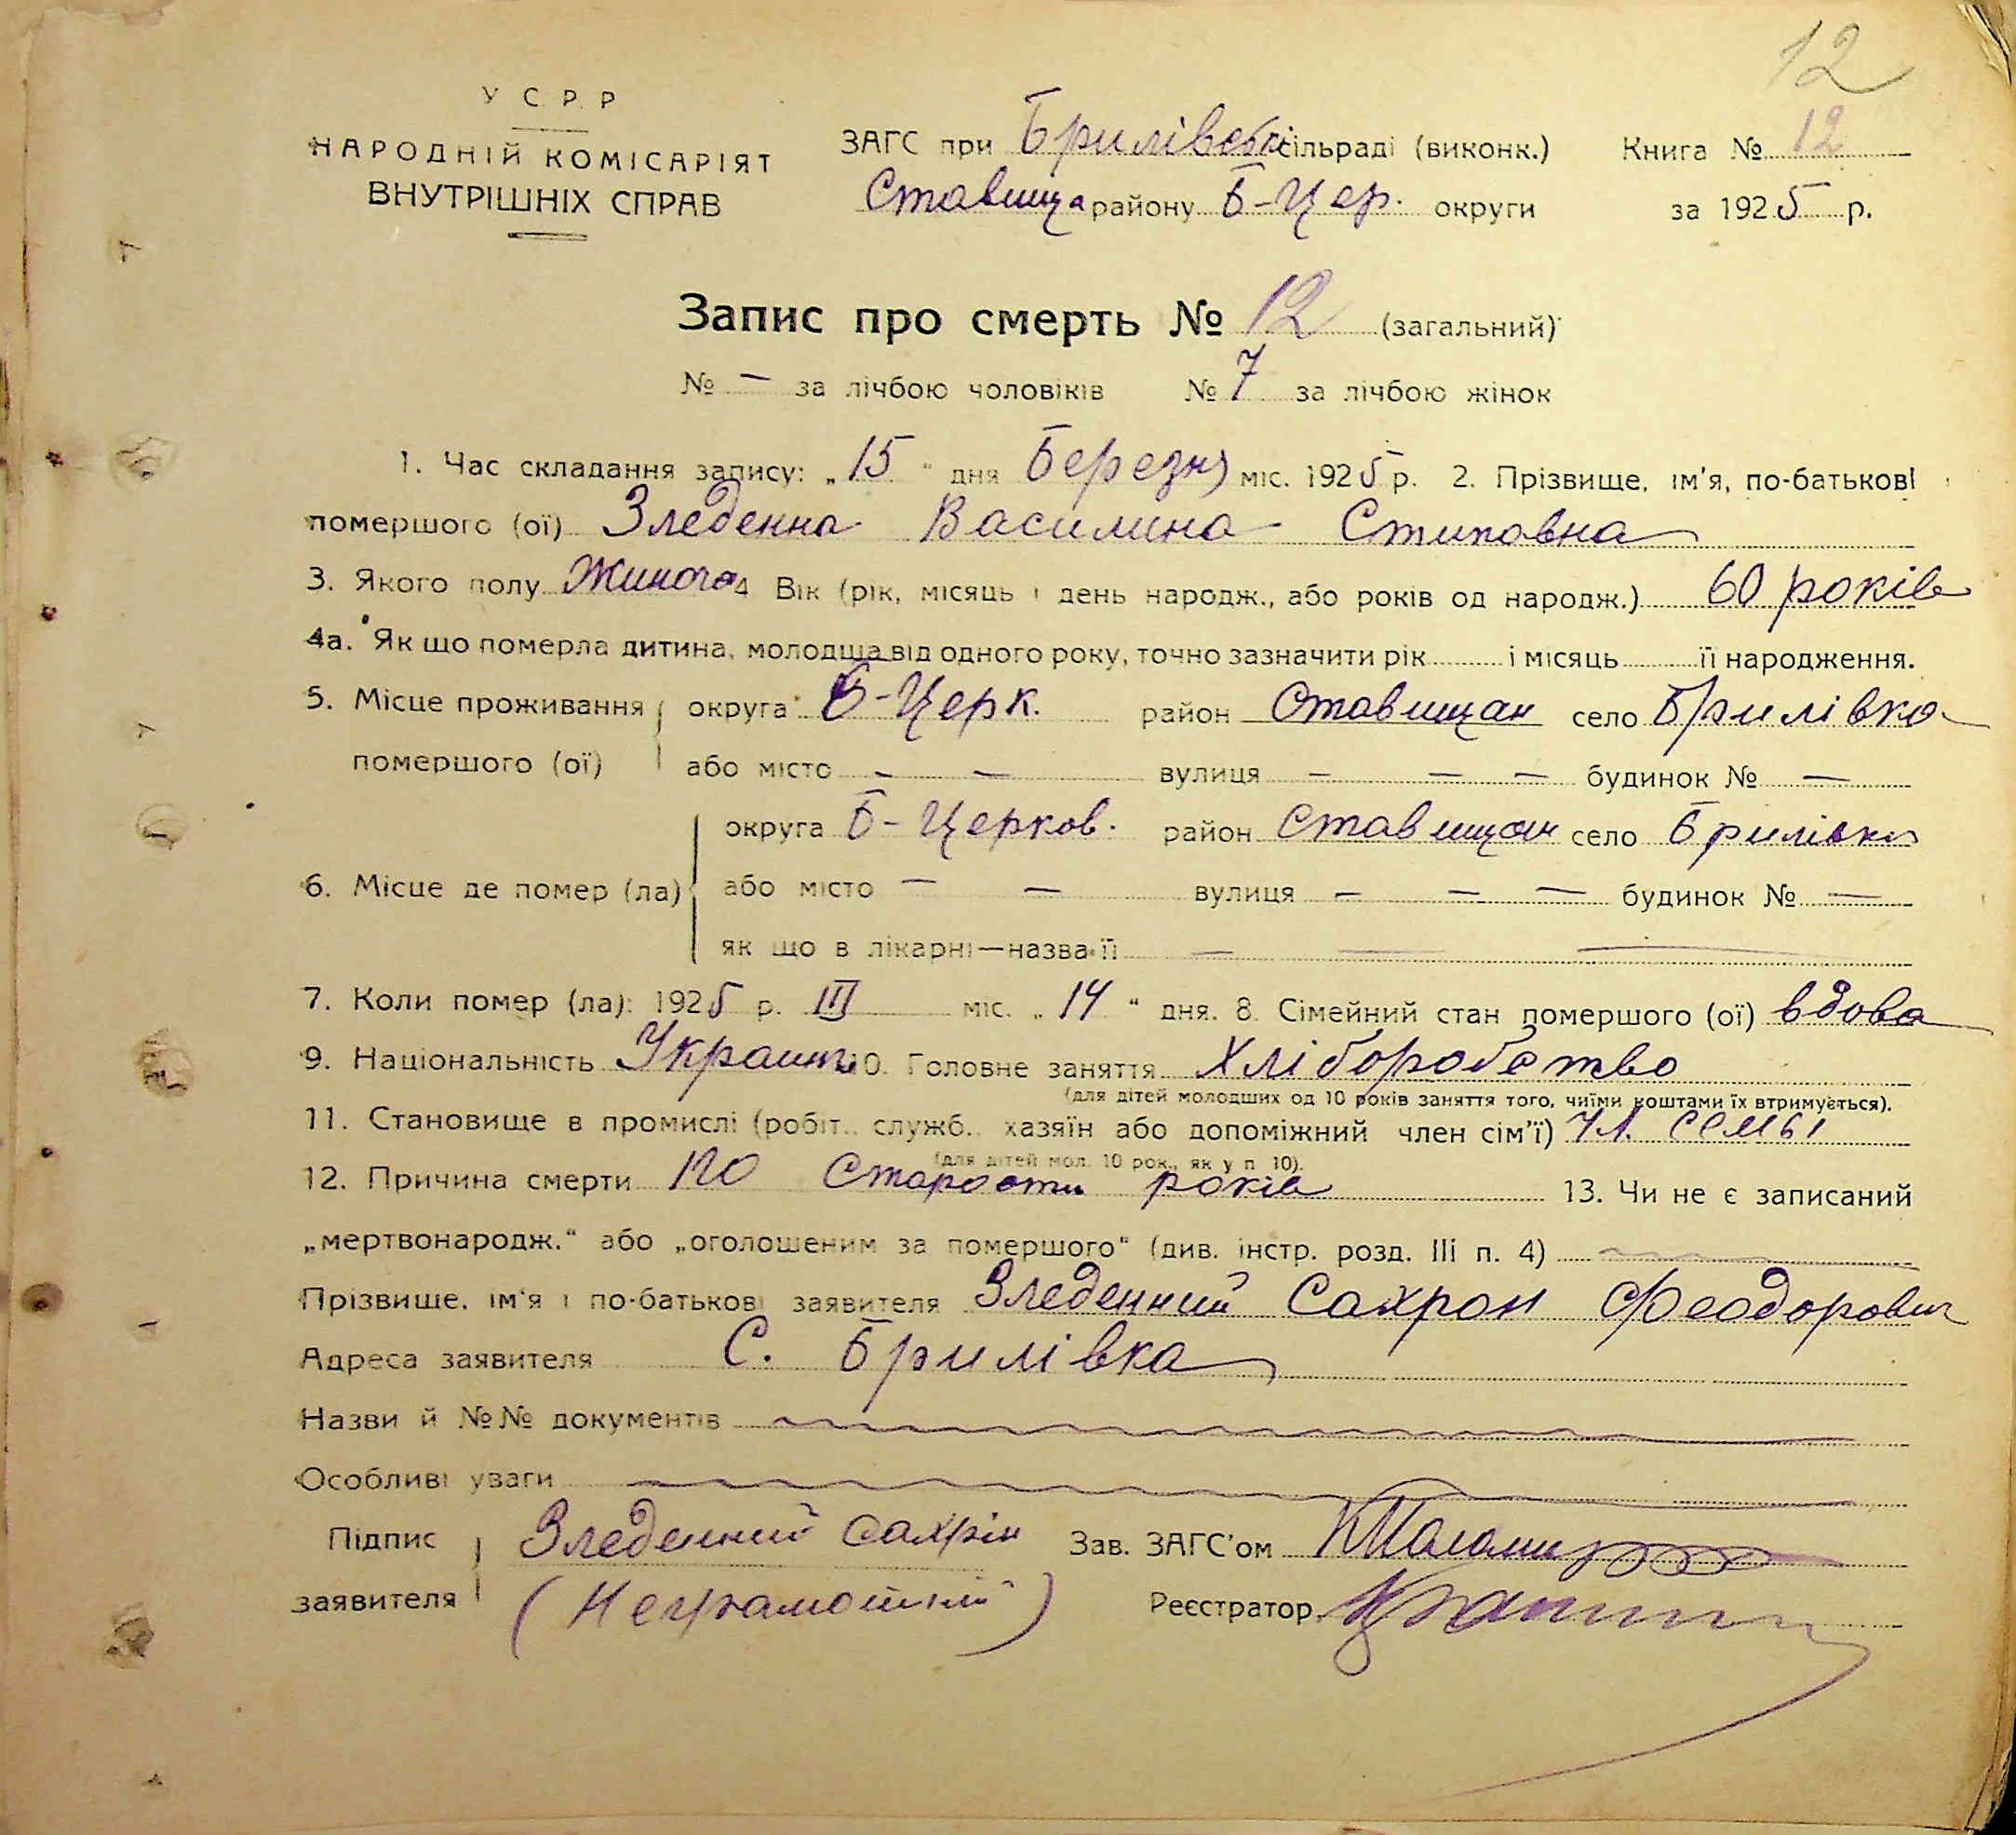 12
У С Р Р
НАРОДНІЙ КОМІСАРІЯТ
ВНУТРІШНІХ СПРАВ
ЗАГС при Брилівській сільраді (виконк.)
Ставища району Б-Цер. округи
Книга № 12
за 1925 р.
Запис про смерть № 12 (загальний)
№ — за лічбою чоловіків № 7 за лічбою жінок
1. Час складання запису: „15" дня Березня міс. 1925 р. 2. Прізвище, ім'я, по-батькові
помершого (ої) Зледенна Василина Стиповна
3. Якого полу Жиноча 4 Вік (рік, місяць і день народж., або років од народж.) 60 років
4а. Як що померла дитина, молодша від одного року, точно зазначити рік і місяць її народження.
5. Місце проживання округа Б-Церк. район Ставищан село Брилівка
помершого (ої) або місто — — вулиця — — — будинок № —
округа Б-Церков. район Ставищан село Брилівка
6. Місце де помер (ла) або місто — — вулиця — — — будинок № —
як що в лікарні—назва її — — —
7. Коли помер (ла): 1925 р. III міс. „14" дня. 8. Сімейний стан помершого (ої) вдова
9. Національність Украин 10. Головне заняття Хліборобство
(для дітей молодших од 10 років заняття того, чиїми коштами їх втримується).
11. Становище в промислі (робіт., служб., хазяїн або допоміжний член сім'ї) чл. семьі
(для дітей мол. 10 рок., як у п 10).
12. Причина смерти по Старости років 13. Чи не є записаний
„мертвонародж." або „оголошеним за помершого" (див. інстр. розд. III п. 4)
Прізвище, ім'я і по-батькові заявителя Зледенний Сахрон Феодорович
Адреса заявителя С. Брилівка
Назви й №№ документів
Особливі уваги
Підпис Зледенний Сахрін Зав. ЗАГС'ом
заявителя (Неграмотний) Реєстратор